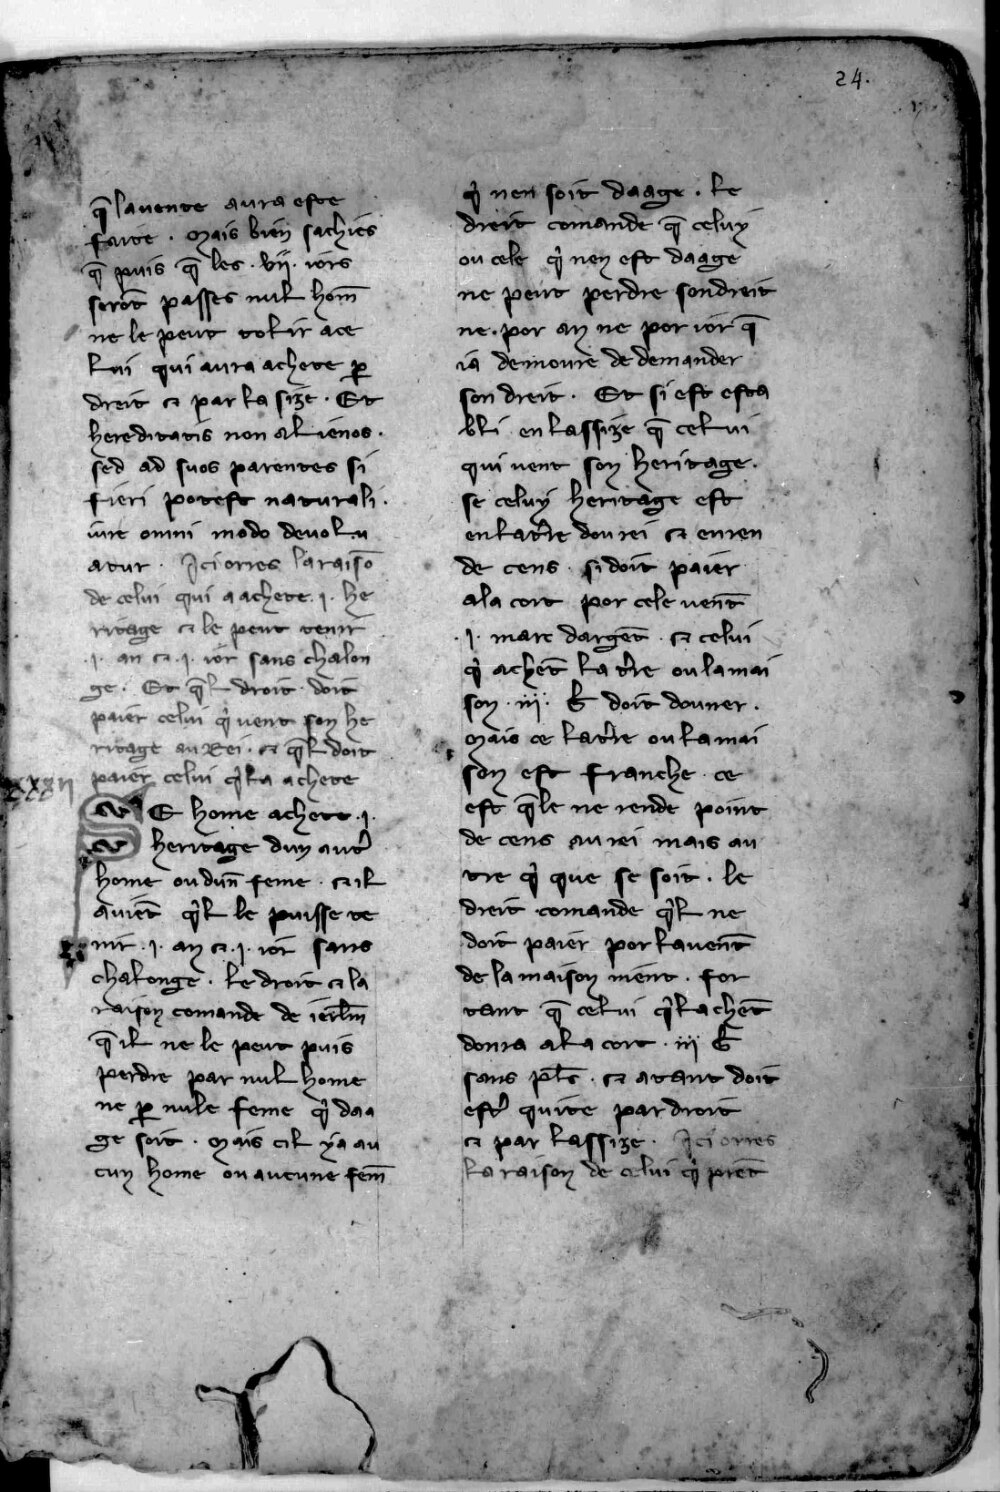 24.
q̄ lauente aura este
faite . Mais bien sachies
q̄ puis q̄ les . vii . iors
serōt passes nul hom̄
ne le peut tolir a ce
lui qui aura achete ꝑ
dreit ⁊ par la size . Et
hereditatis non alienos .
sed ad suos parentes si
fieri potest naturali .
iure omni modo deuolu
atur . Ici orres la raisō
de celui qui a achete . i . he
ritage ⁊ le peut tenir
. i . an ⁊ . i . ior sans chalon
ge . Et q̄l droit doit
paier celui q̇ vent son he
ritage au Rei . ⁊ q̄l doit
paier celui q̇ la achete
SE home achete . i .
heritage dun autꝰ
home ou dun̄ feme . ⁊ il
auiēt q̇l le puisse te
nir . i . an ⁊ . i . ior sans
chalonge . le droit ⁊ la
raison comande de ierl̄m
q̄ il ne le peut puis
perdre par nul home
ne ꝑ nule feme q̇ daa
ge soit . Mais cil ya au
cun home ou aucune fem̄
q̇ nen soit daage . le
dreit comande q̄ celuy
ou cele q̇ nen est daage
ne peut perdre son dreit
ne . por an ne por ior q̄
ia demoure de demander
son dreit . Et si est esta
bli en lassize q̄ celui
qui uent son heritage .
se celuy heritage est
en la tr̄re dou rei ⁊ en ren
de cens . si doit paier
a la cort por cele uent̄
. i . marc dargēt . ⁊ celui
q̇ achet̄ la tr̄re ou la mai
son . iii . ꝉ doit donner .
Mais ce la tr̄re ou la mai
son est franche . ce
est q̄le ne rende point
de cens au rei mais au
tre q̇ que se soit . le
dreit comande q̇l ne
doit paier por la uent̄
de la maison nient . for
tant q̄ celui q̇ la achet̄
donra a la cort . iii ꝉ
sans pl̄s . ⁊ atant doit
estꝰ quite par droit
⁊ par lassize . Ici orres
la raison de celui q̇ prēt